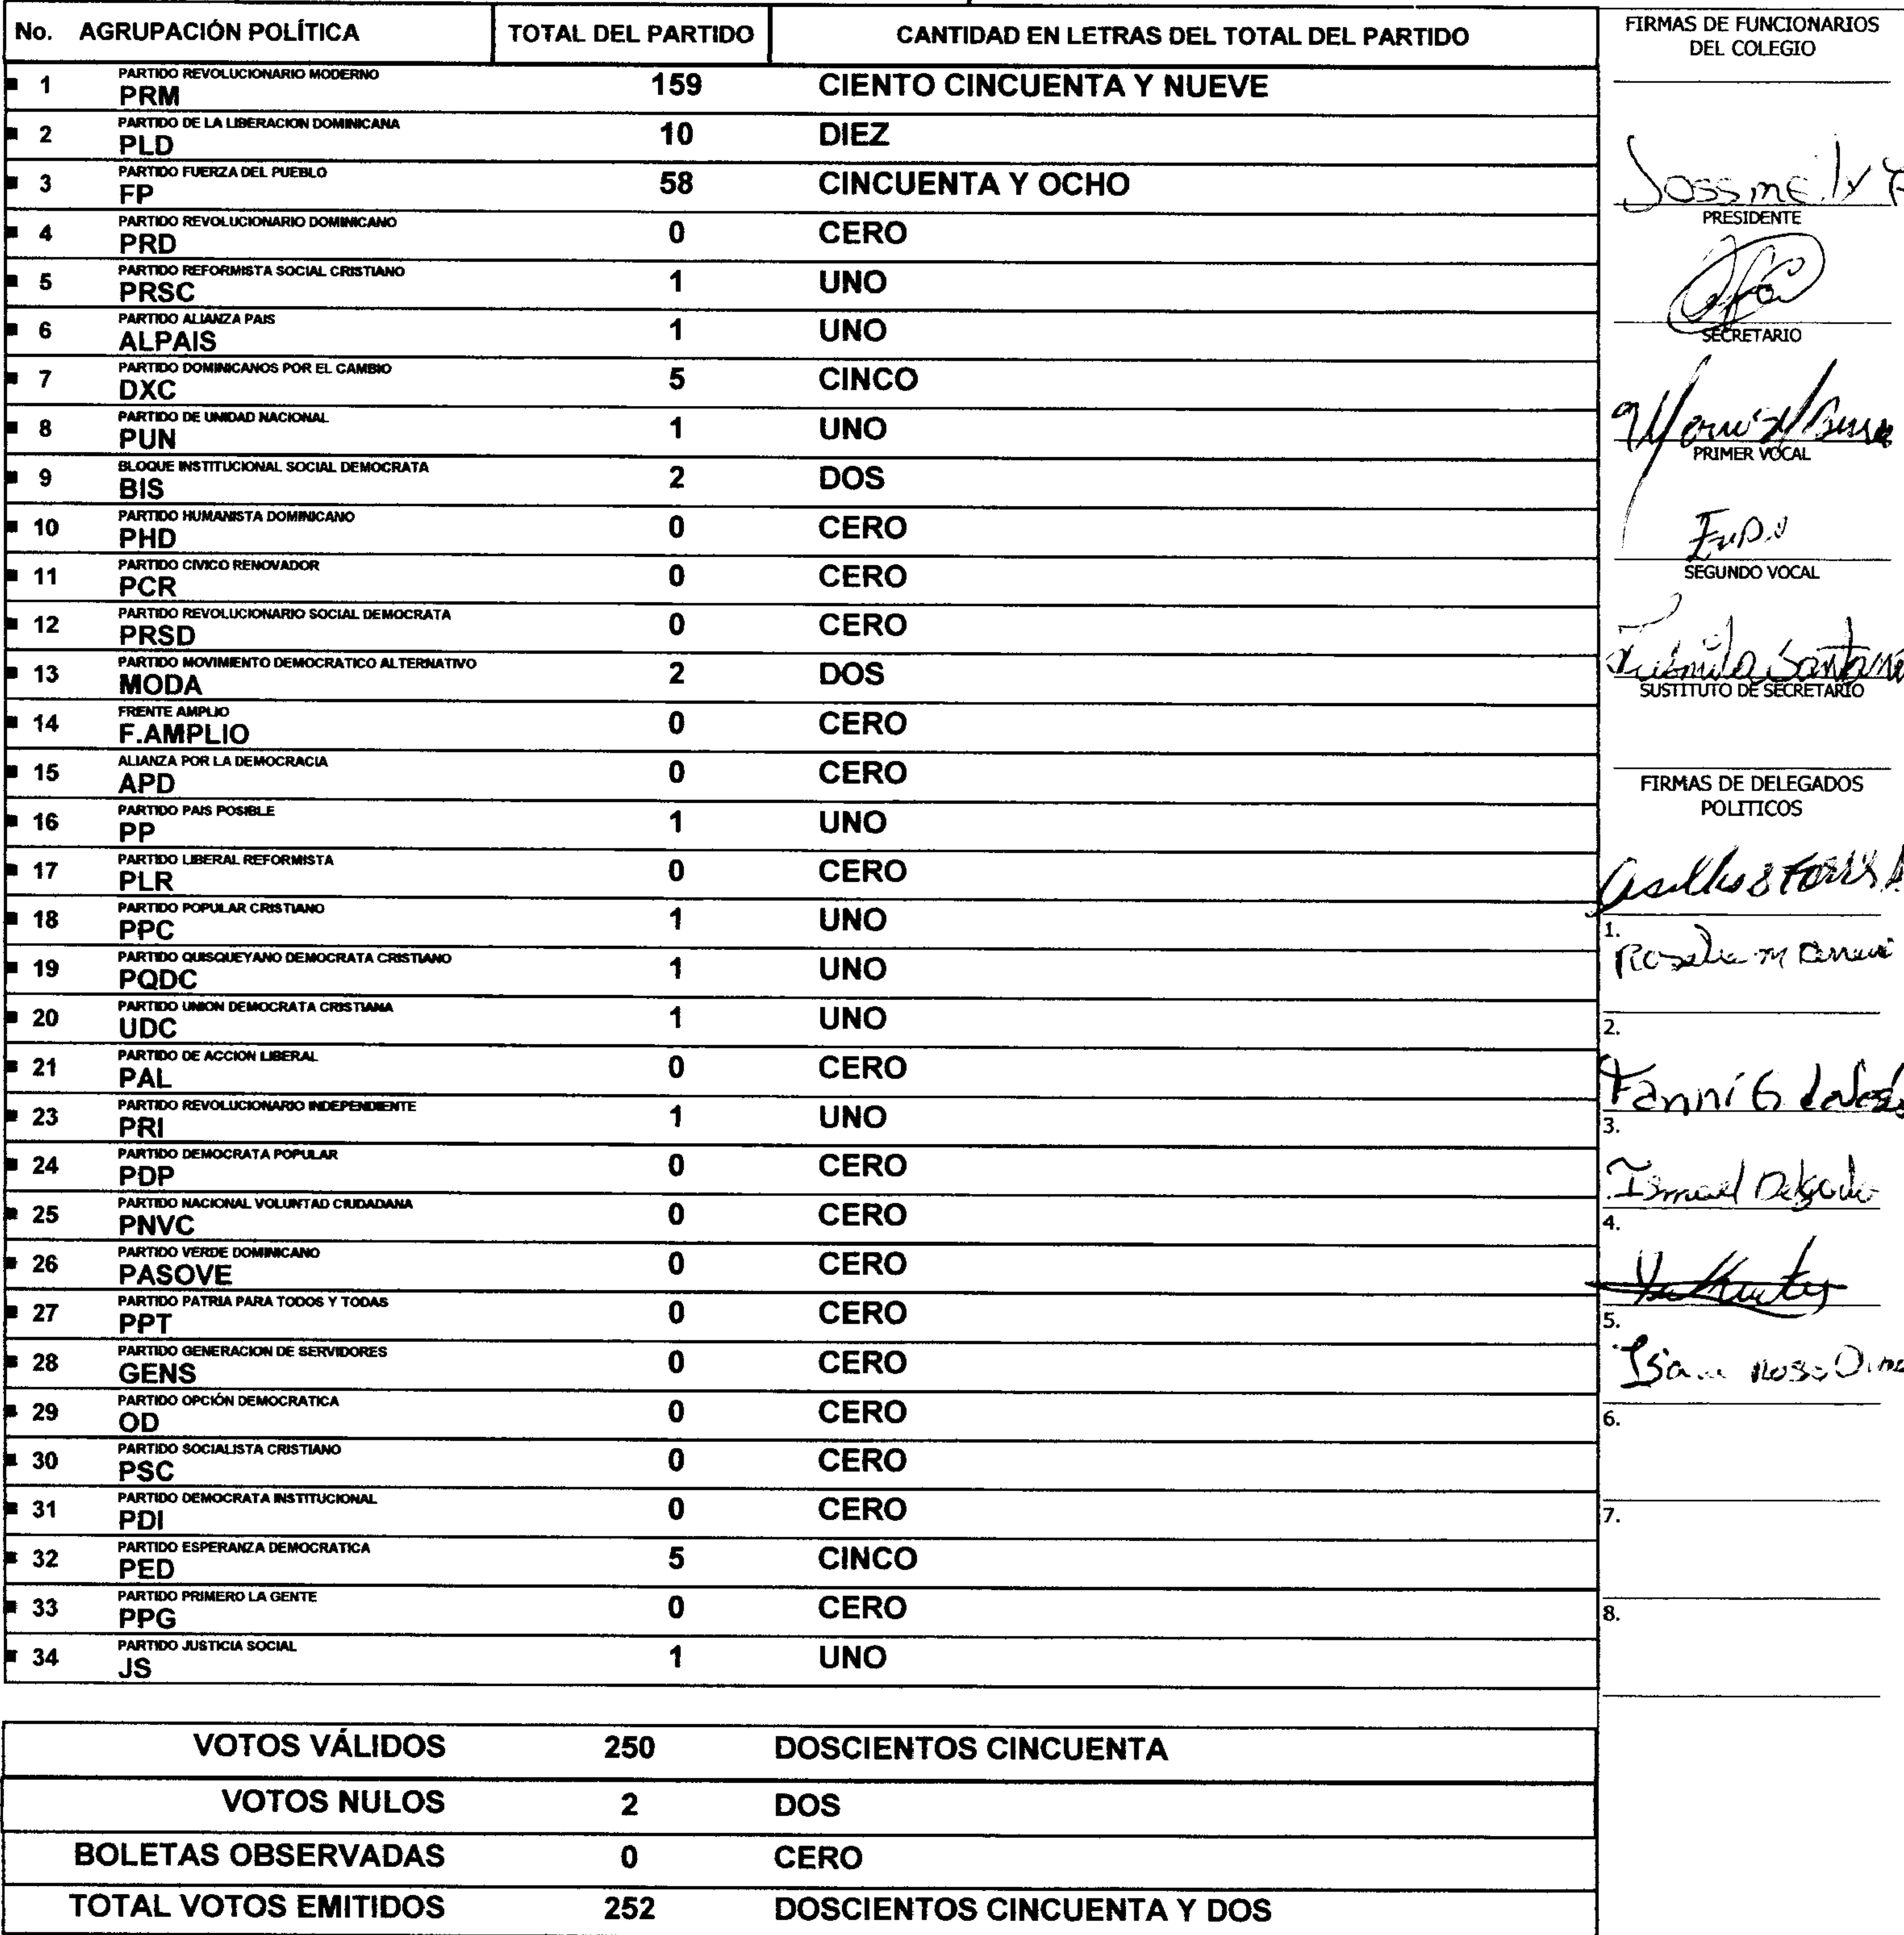 No. AGRUPACIÓN POLÍTICA TOTAL DEL PARTIDO CANTIDAD EN LETRAS DEL TOTAL DEL PARTIDO
1 PARTIDO REVOLUCIONARIO MODERNO
PRM 159 CIENTO CINCUENTA Y NUEVE
2 PARTIDO DE LA LIBERACION DOMINICANA
PLD 10 DIEZ
3 PARTIDO FUERZA DEL PUEBLO
FP 58 CINCUENTA Y OCHO
4 PARTIDO REVOLUCIONARIO DOMINICANO
PRD 0 CERO
5 PARTIDO REFORMISTA SOCIAL CRISTIANO
PRSC 1 UNO
6 PARTIDO ALIANZA PAIS
ALPAIS 1 UNO
7 PARTIDO DOMINICANOS POR EL CAMBIO
DXC 5 CINCO
8 PARTIDO DE UNIDAD NACIONAL
PUN 1 UNO
9 BLOQUE INSTITUCIONAL SOCIAL DEMOCRATA
BIS 2 DOS
10 PARTIDO HUMANISTA DOMINICANO
PHD 0 CERO
11 PARTIDO CIVICO RENOVADOR
PCR 0 CERO
12 PARTIDO REVOLUCIONARIO SOCIAL DEMOCRATA
PRSD 0 CERO
13 PARTIDO MOVIMIENTO DEMOCRATICO ALTERNATIVO
MODA 2 DOS
14 FRENTE AMPLIO
F.AMPLIO 0 CERO
15 ALIANZA POR LA DEMOCRACIA
APD 0 CERO
16 PARTIDO PAIS POSIBLE
PP 1 UNO
17 PARTIDO LIBERAL REFORMISTA
PLR 0 CERO
18 PARTIDO POPULAR CRISTIANO
PPC 1 UNO
19 PARTIDO QUISQUEYANO DEMOCRATA CRISTIANO
PQDC 1 UNO
20 PARTIDO UNION DEMOCRATA CRISTIANA
UDC 1 UNO
21 PARTIDO DE ACCION LIBERAL
PAL 0 CERO
23 PARTIDO REVOLUCIONARIO INDEPENDIENTE
PRI 1 UNO
24 PARTIDO DEMOCRATA POPULAR
PDP 0 CERO
25 PARTIDO NACIONAL VOLUNTAD CIUDADANA
PNVC 0 CERO
26 PARTIDO VERDE DOMINICANO
PASOVE 0 CERO
27 PARTIDO PATRIA PARA TODOS Y TODAS
PPT 0 CERO
28 PARTIDO GENERACION DE SERVIDORES
GENS 0 CERO
29 PARTIDO OPCIÓN DEMOCRATICA
OD 0 CERO
30 PARTIDO SOCIALISTA CRISTIANO
PSC 0 CERO
31 PARTIDO DEMOCRATA INSTITUCIONAL
PDI 0 CERO
32 PARTIDO ESPERANZA DEMOCRATICA
PED 5 CINCO
33 PARTIDO PRIMERO LA GENTE
PPG 0 CERO
34 PARTIDO JUSTICIA SOCIAL
JS 1 UNO
VOTOS VÁLIDOS 250 DOSCIENTOS CINCUENTA
VOTOS NULOS 2 DOS
BOLETAS OBSERVADAS 0 CERO
TOTAL VOTOS EMITIDOS 252 DOSCIENTOS CINCUENTA Y DOS
FIRMAS DE FUNCIONARIOS
DEL COLEGIO
PRESIDENTE
SECRETARIO
PRIMER VOCAL
SEGUNDO VOCAL
Santana
SUSTITUTO DE SECRETARIO
FIRMAS DE DELEGADOS
POLITICOS
1.
2.
3.
Ismael Delgado
4.
5.
6.
7.
8.